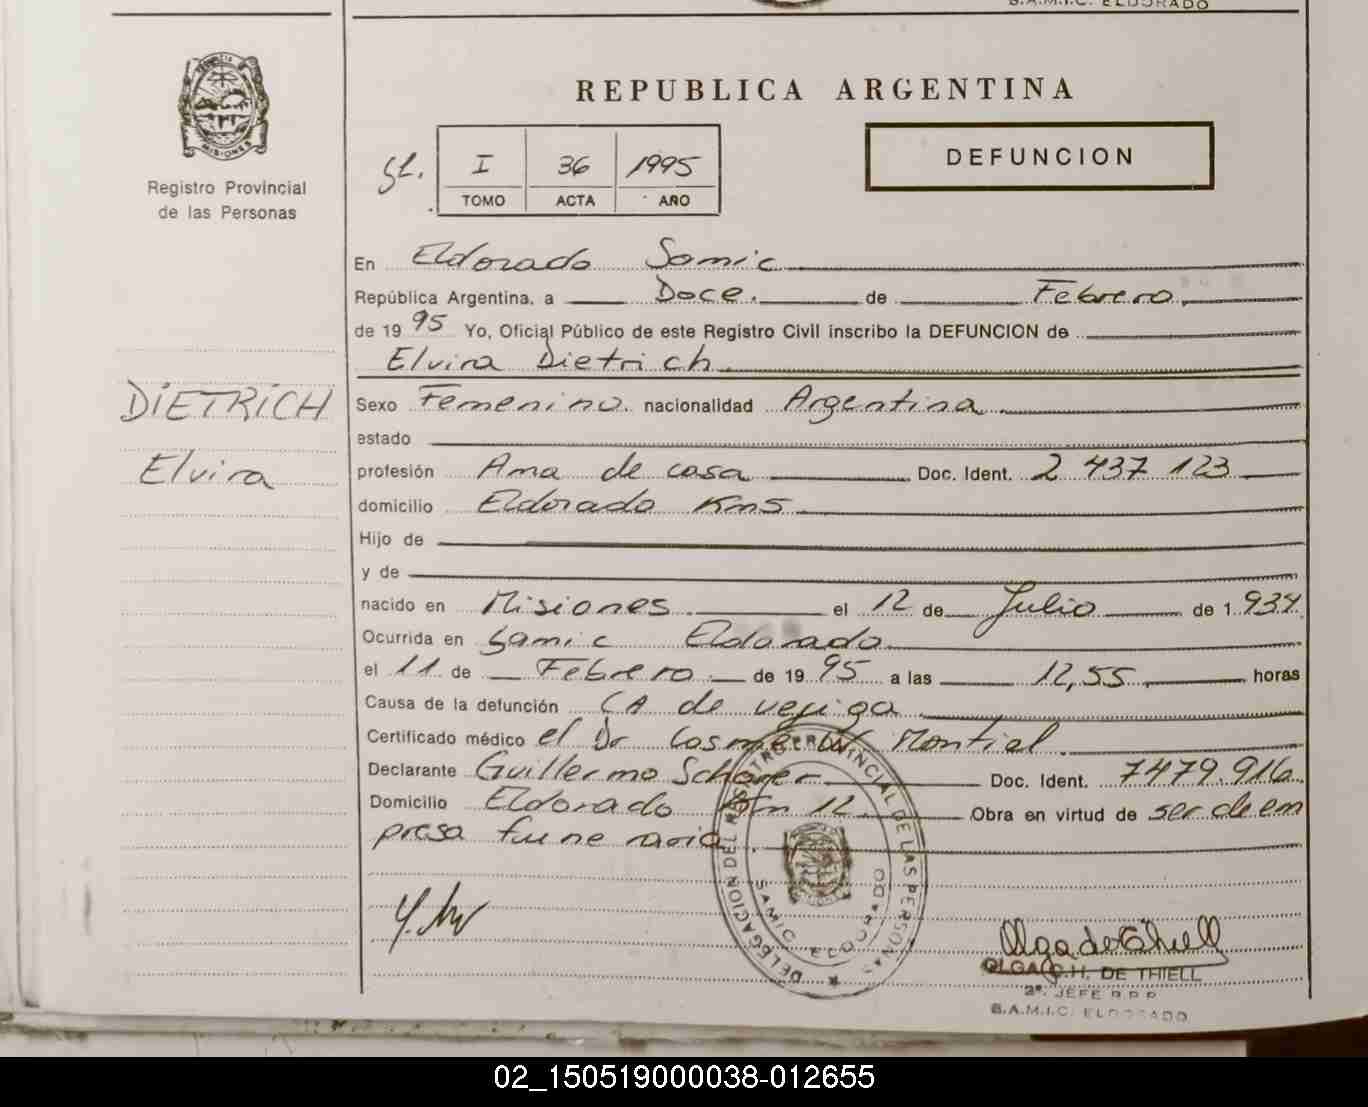 S.A.M.I.C. ELDORADO
MISIONES
Registro Provincial
de las Personas
REPUBLICA ARGENTINA
I 36 1995
TOMO ACTA AÑO
DEFUNCION
En Eldorado Samic
República Argentina, a Doce. de Febrero
de 19 95 Yo, Oficial Público de este Registro Civil inscribo la DEFUNCION de
Elvira Dietrich
DIETRICH
Elvira
Sexo Femenino. nacionalidad Argentina
estado
profesión Ama de casa Doc. Ident. 2 437 123
domicilio Eldorado Km5
Hijo de
y de
nacido en Misiones el 12 de Julio de 1.934
Ocurrida en Samic Eldorado
el 11 de Febrero de 19 95 a las 12,55 horas
Causa de la defunción CA de vejiga
Certificado médico el Dr Cosme W Montiel
Declarante Guillermo Schorer Doc. Ident. 7479.916
Domicilio Eldorado Km 12 Obra en virtud de ser de em
presa funeraria
DELEGACION DEL REGISTRO PROVINCIAL DE LAS PERSONAS
SAMIC ELDORADO
Olga de Thiell
OLGA C.H. DE THIELL
2º. JEFE R.P.P.
S.A.M.I.C. ELDORADO
02_150519000038-012655